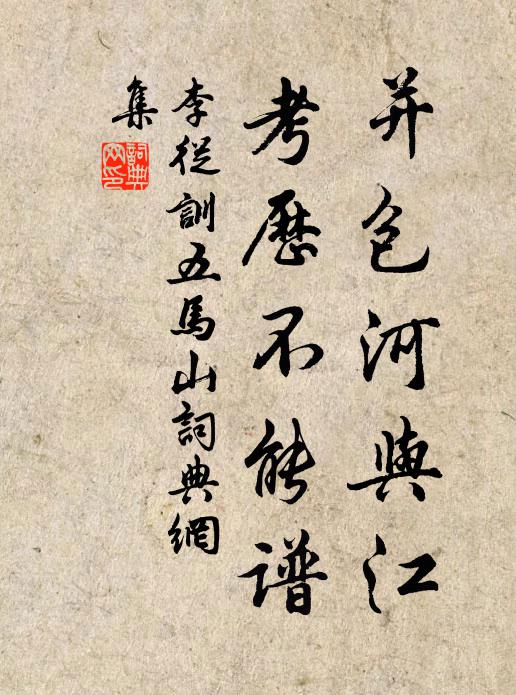 并包河與江
考歷不能譜
李從訓五馬山詞典網
集
詞典網印